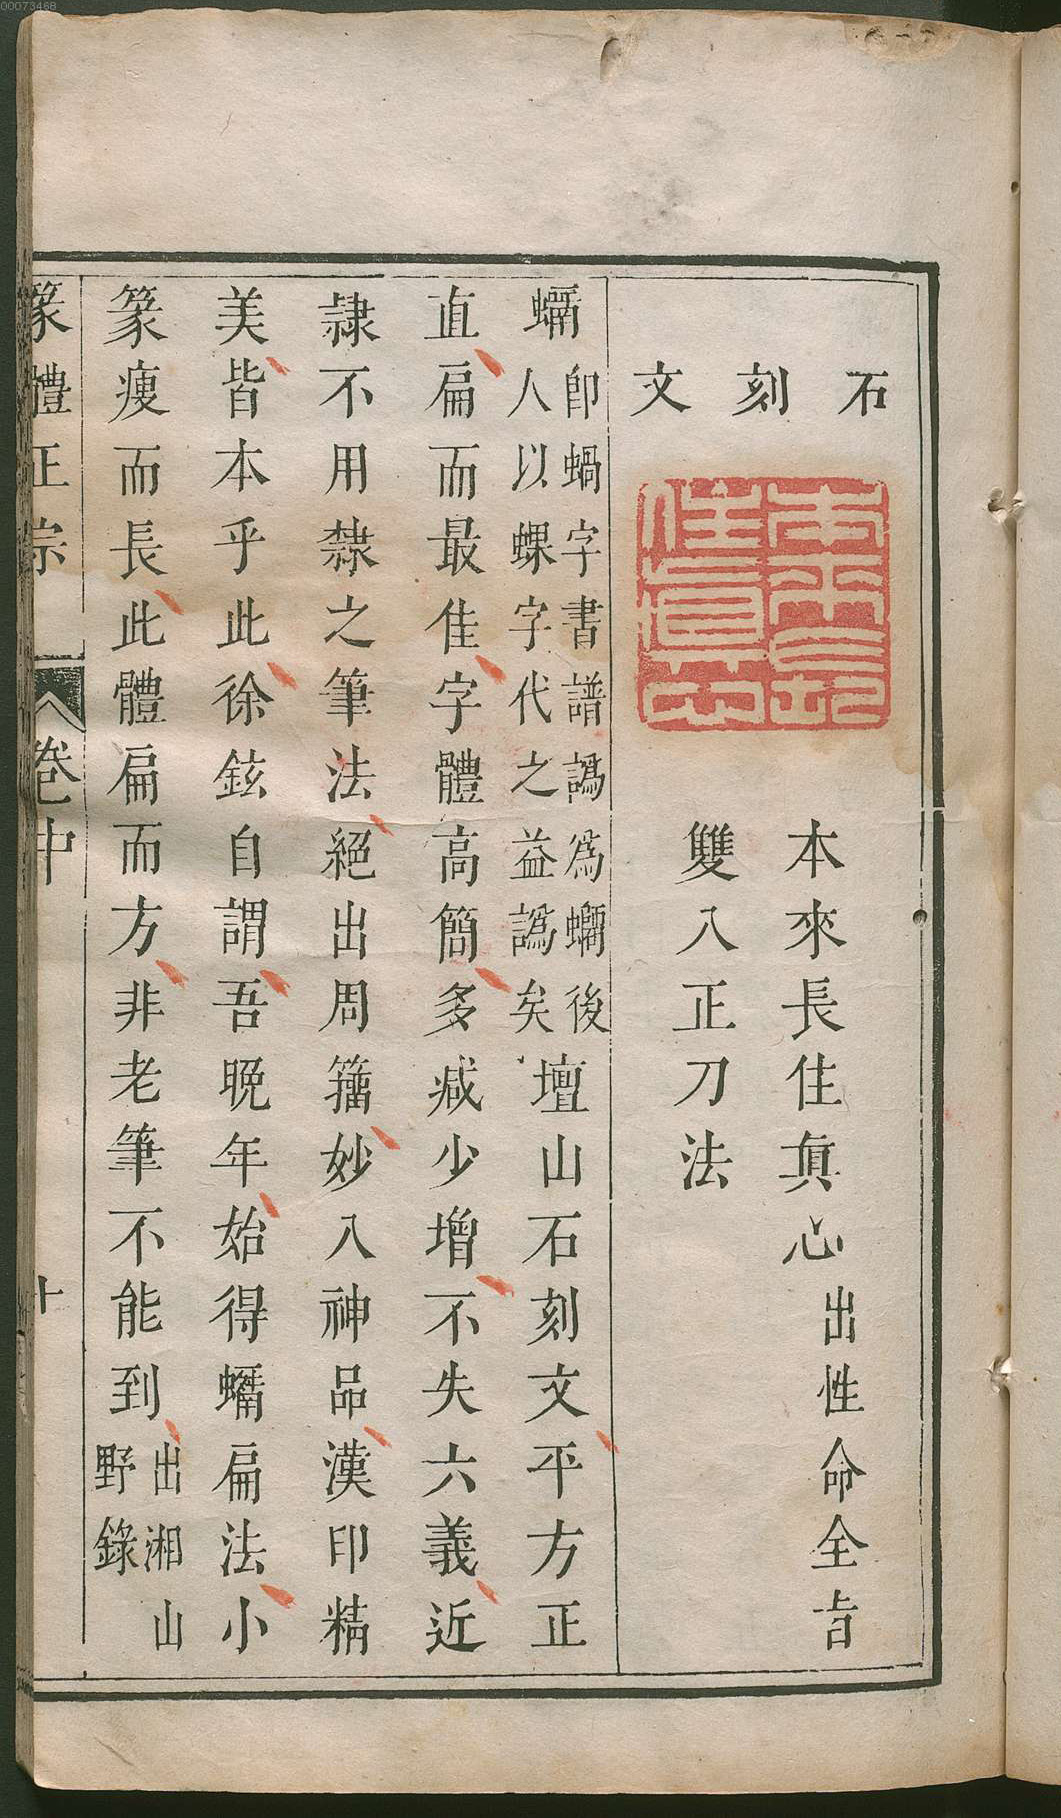 00073468
石刻文
本來長住眞心出性命全㫖
雙入正刀法
䗱卽蝸字書譜譌爲䗱後人以螺字代之益譌矣壇山石刻文平方正
直扁而最佳字體高簡多減少增不失六義近
隷不用隸之筆法絕出周籀妙入神品漢印精
美皆本乎此徐鉉自謂吾晩年始得䗱扁法小
篆瘦而長此體扁而方非老筆不能到出湘山野錄
篆體正宗 卷中 十